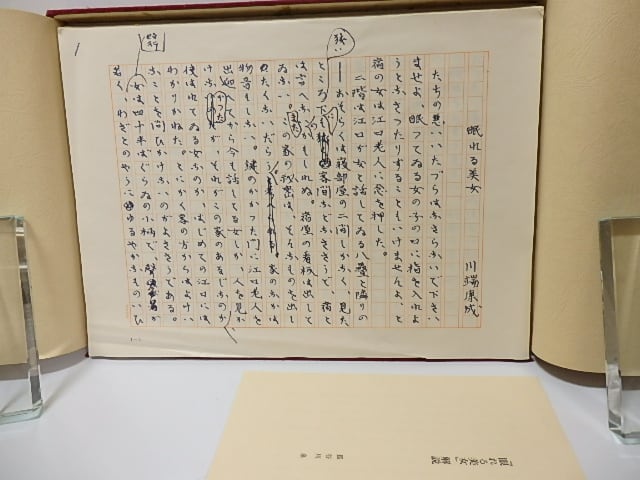 眠れる美女
川端康成
たちの悪いいたづらはなさらないで下さい
ませよ、眠つてゐる女の子の口に指を入れよ
うとなさつたりすることもいけませんよ、と
宿の女は江口老人に念を押した。
二階は江口が女と話してゐる八畳と隣りの
――おそらくは寝部屋の二間しかなく、見た
ところ下も狭い客間などなささうで、宿と
は言へないかもしれぬ。宿屋の看板は出して
ゐない。またこの家の秘密は、そんなものを出
ないだらう。家のなかは
物音もしない。鍵のかかつた門に江口老人を
出迎へてから今も話してゐる女しか、人を見か
けなかつたが、それがこの家のあるじなのか、
使はれてゐる女なのか、はじめての江口には
わかりかねた。とにかく客の方からはよけい
なことを問ひかけないのがよささうである。
女は四十半ばぐらゐの小柄で、聲が
若く、わざとのやうにゆるやかなものいひ
改行
1
「眠れる美女」解説
長谷川泉